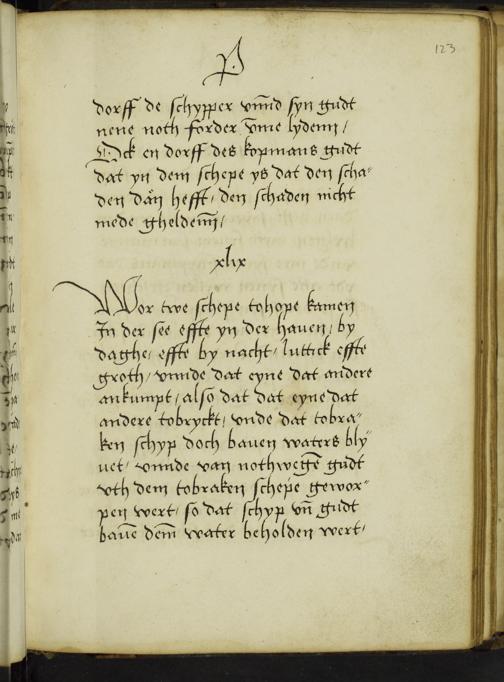 123
P
dorff de schypper vnnd syn gudt
nene noth forder vme lydenn /
Ock en dorff des kopmans gudt
dat yn dem schepe ys dat den scha-
den dan hefft / den schaden nicht
mede gheldenn /
xlix
Wor twe schepe tohope kamen
In der see effte yn der hauen / by
daghe / effte by nacht / luttick effte
groth / vnnde dat eyne dat andere
ankumpt / also dat dat eyne dat
andere tobryckt / vnde dat tobra-
ken schyp doch bauen waters bly
uet / vnnde van nothwegē gudt
vth dem tobraken schepe gewor-
pen wert / so dat schyp vn̄ gudt
bauē dem̄ water beholden wert /